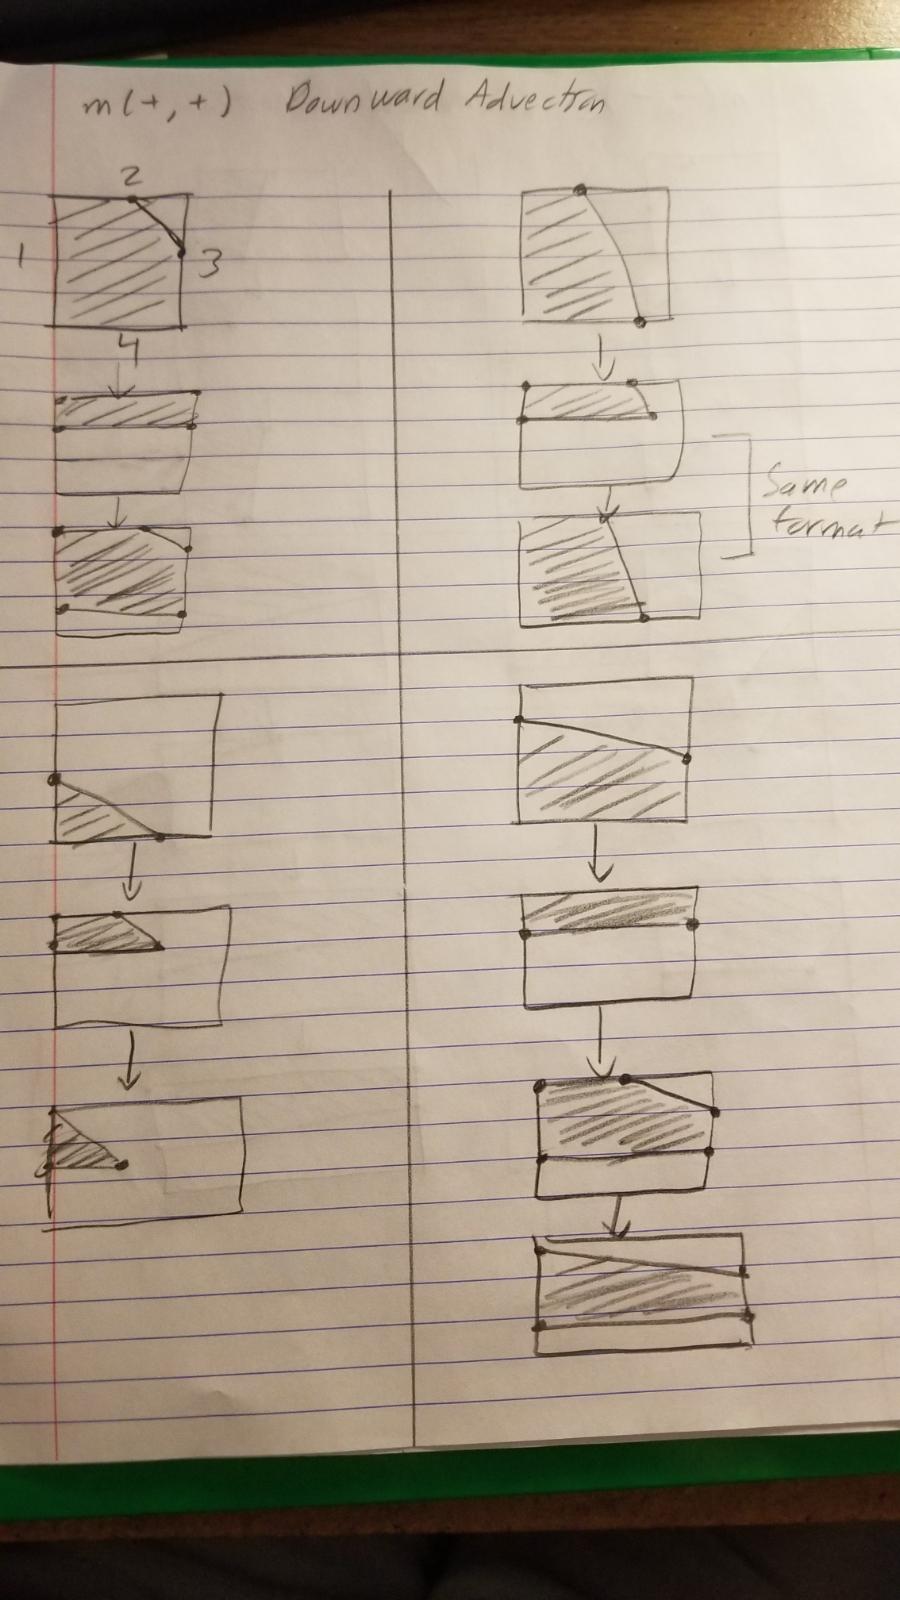 m(+,+) Downward Advection
2
1 3
4
Same
format